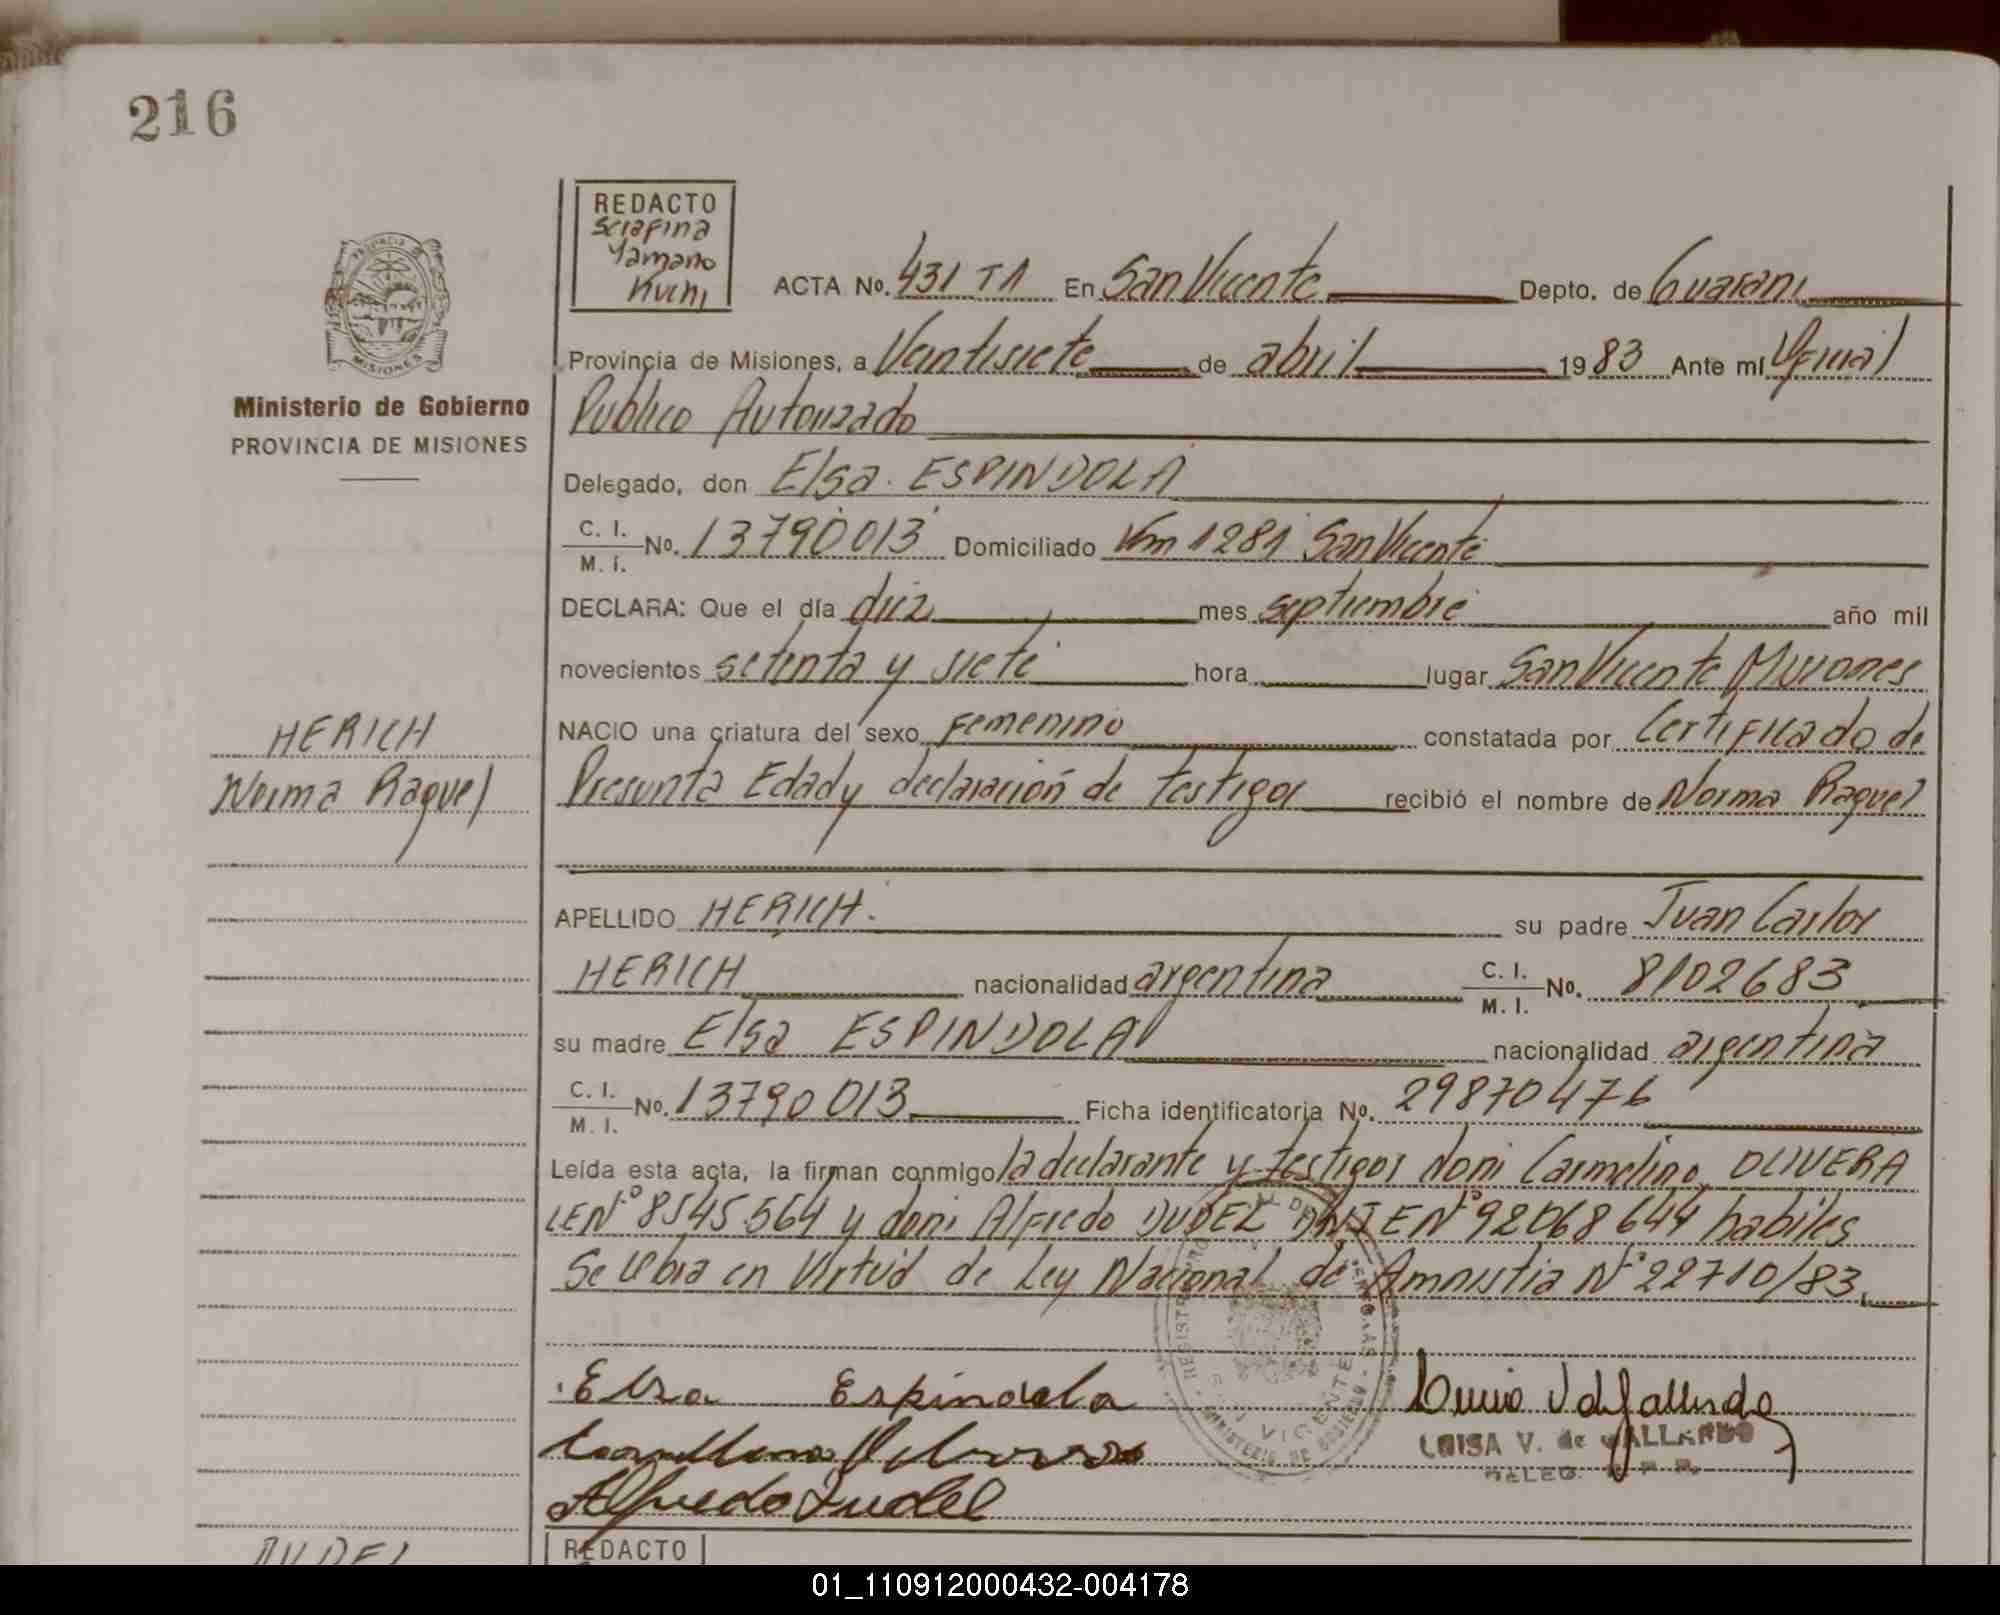 216
REDACTO
Serafina
Yamano
Kuchi
ACTA No. 431 T1 En San Vicente Depto. de Guarani
Provincia de Misiones, a Veintisiete de abril 1983 Ante mi Oficial
Publico Autorizado
Ministerio de Gobierno
PROVINCIA DE MISIONES
MISIONES
Delegado, don Elsa ESPINDOLA
C. I.
M. I. No. 13790013 Domiciliado Km 1281 San Vicente
DECLARA: Que el día diez mes septiembre año mil
novecientos setenta y siete hora lugar San Vicente Misiones
NACIO una criatura del sexo Femenino constatada por Certificado de
Presunta Edad y declaración de testigos recibió el nombre de Norma Raquel
HERICH
Norma Raquel
APELLIDO HERICH. su padre Juan Carlos
HERICH nacionalidad argentina C. I.
M. I. No. 8102683
su madre Elsa ESPINDOLA nacionalidad argentina
C. I.
M. I. No. 13790013 Ficha identificatoria No. 29870476
Leída esta acta, la firman conmigo la declarante y testigos don: Carmelino OLIVERA
LE Nº 8545.564 y don: Alfredo DUDEL Nº 92068644 habiles
Se labra en Virtud de Ley Nacional de Amnistia Nº 22710/83.
Elsa Espindola
Alfredo Dudel
LUISA V. de GALLARDO
SAN VICENTE
MINISTERIO DE GOBIERNO
DUDEL
REDACTO
01_110912000432-004178